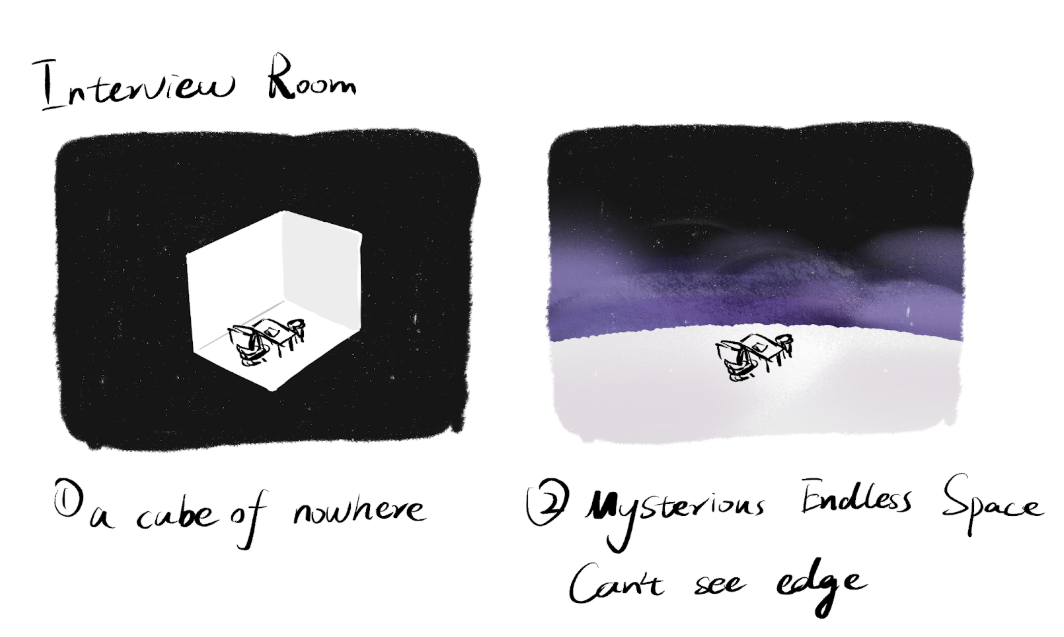 Interview Room
① a cube of nowhere
② Mysterious Endless Space
Can't see edge